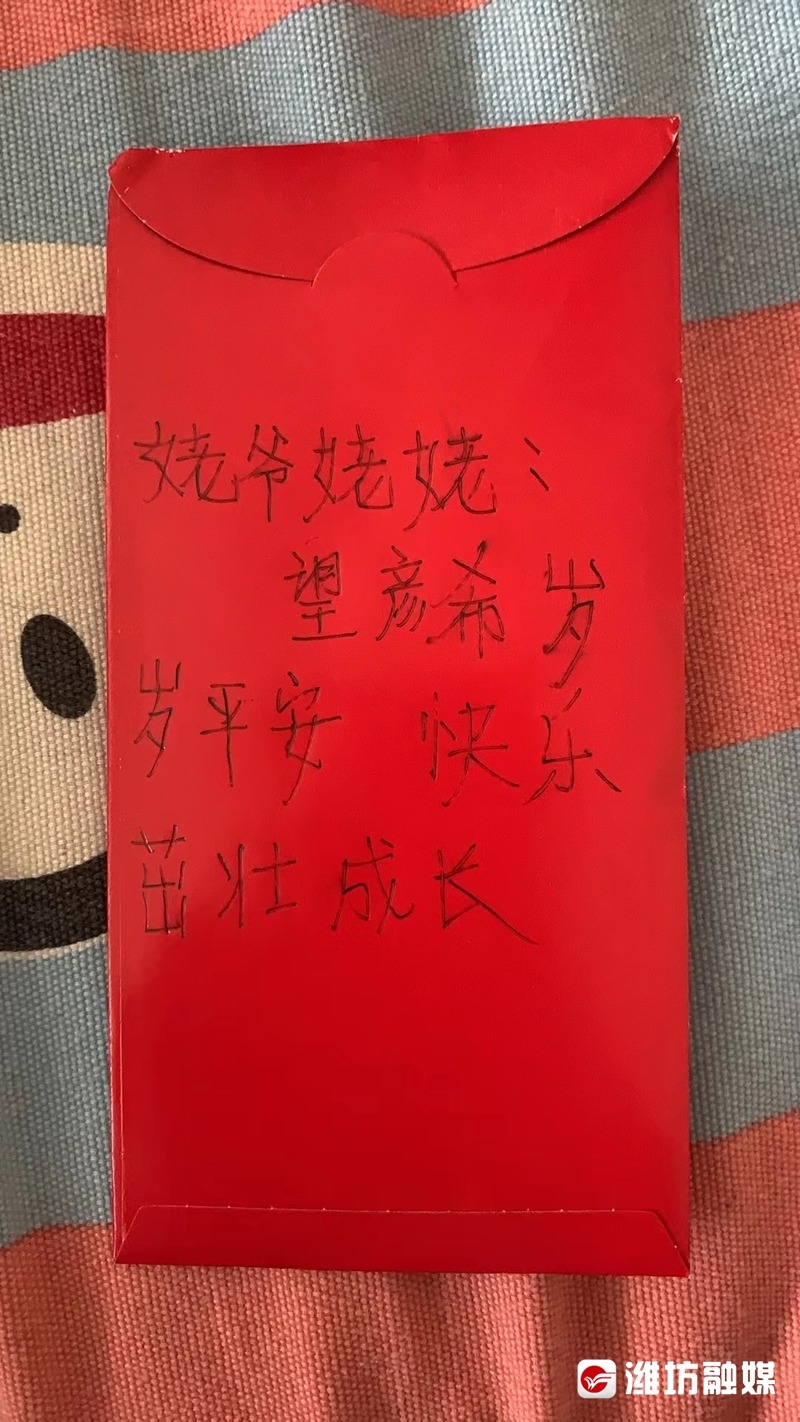 姥爷姥姥：
望彦希岁
岁平安 快乐
茁壮成长
潍坊融媒